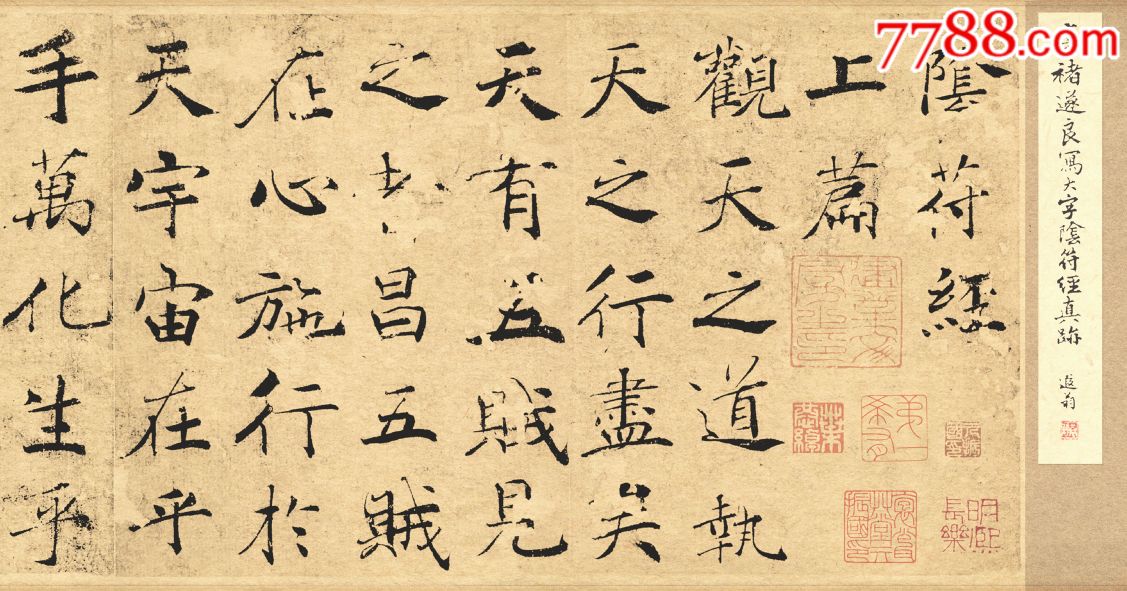 7788.com
褚遂良寫大字陰符經真跡 遐翁
陰符經
上篇
觀天之道執
天之行盡矣
天有五賊見
之者昌五賊
在心施行於
天宇宙在乎
手萬化生乎